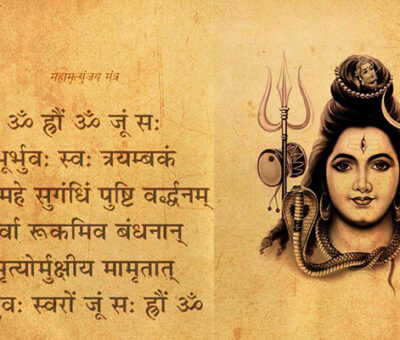 महामृत्युंजय मंत्र
ॐ ह्रौं ॐ जूं सः
भूर्भुवः स्वः त्रयम्बकं
महे सुगंधिं पुष्टि वर्द्धनम्
र्वा रूकमिव बंधनान्
मृत्योर्मुक्षीय मामृतात्
वः स्वरों जूं सः ह्रौं ॐ